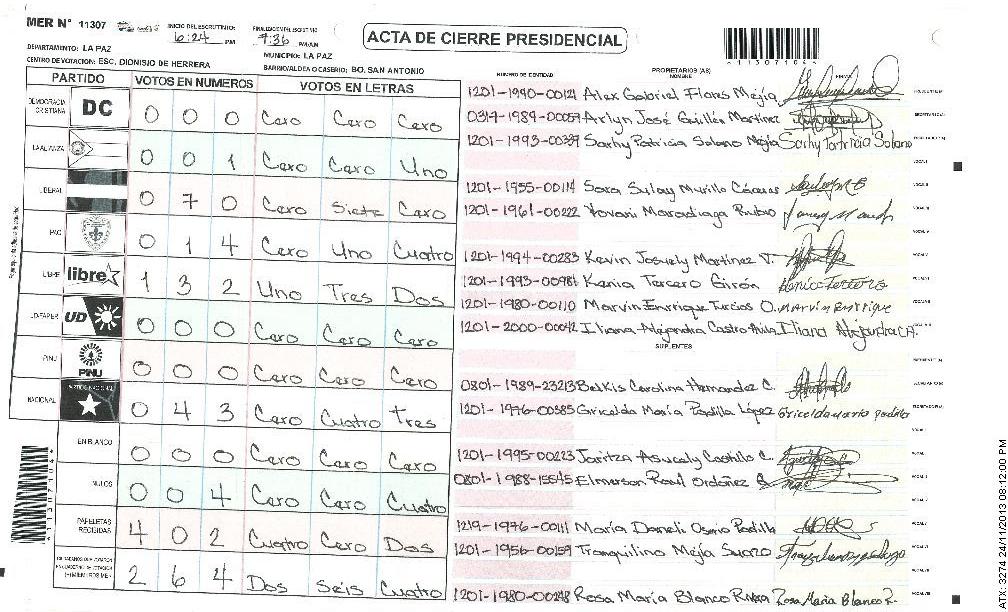 MER N° 11307
INICIO DEL ESCRUTINIO: 6:24 PM
FINALIZACION DEL ESCRUTINIO 7:36 PM/AM
ACTA DE CIERRE PRESIDENCIAL
11307104
DEPARTAMENTO: LA PAZ
MUNICIPIO: LA PAZ
CENTRO DE VOTACION: ESC. DIONISIO DE HERRERA
BARRIO/ALDEA O CASERIO: BO. SAN ANTONIO
PARTIDO VOTOS EN NUMEROS VOTOS EN LETRAS
NUMERO DE IDENTIDAD PROPIETARIOS (AS) NOMBRE FIRMA
DEMOCRACIA CRISTIANA DC 0 0 0 Cero Cero Cero
LA ALIANZA 0 0 1 Cero Cero Uno
LIBERAL 0 7 0 Cero Siete Cero
PAC 0 1 4 Cero Uno Cuatro
LIBRE libre 1 3 2 Uno Tres Dos
UD-FAPER UD 0 0 0 Cero Cero Cero
PINU PINU 0 0 0 Cero Cero Cero
NACIONAL PARTIDO NACIONAL 0 4 3 Cero Cuatro Tres
EN BLANCO 0 0 0 Cero Cero Cero
NULOS 0 0 4 Cero Cero Cuatro
PAPELETAS RECIBIDAS 4 0 2 Cuatro Cero Dos
2 6 4 Dos Seis Cuatro
1201-1990-00121 Alex Gabriel Flores Mejía
0319-1989-00059 Arlyn José Guillén Martinez
1201-1993-00339 Sarhy Patricia Solano Mejía Sarhy Patricia Solano
1201-1955-00114 Sara Sulay Murillo
1201-1961-00222 Yovani Maradiaga Rubio
1201-1994-00283 Kevin Josuely Martinez V.
1201-1993-00981 Kenia Tercero Girón Kenia Tercero
1201-1980-00110 Marvin Enrrique Turcios O. Marvin Enrrique
1201-2000-00042 Iliana Alejandra Castro Avila Iliana Alejandra C.A.
SUPLENTES
0801-1989-23213 Belkis Carolina Hernandez C.
1201-1976-00385 Gricelda María Padilla López Gricelda maria padilla
1201-1995-00223 Jaritza Asucely Castillo C.
0801-1988-15545 Elmerson Raul Ordoñez
1219-1976-00111 María Daneli Osorio Padilla
1201-1956-00159 Tranquilino Mejía Suazo
1201-1980-00298 Rosa María Blanco Rivera Rosa Maria Blanco R.
11307104
ATX-3274 24/11/2013 08:12:00 PM